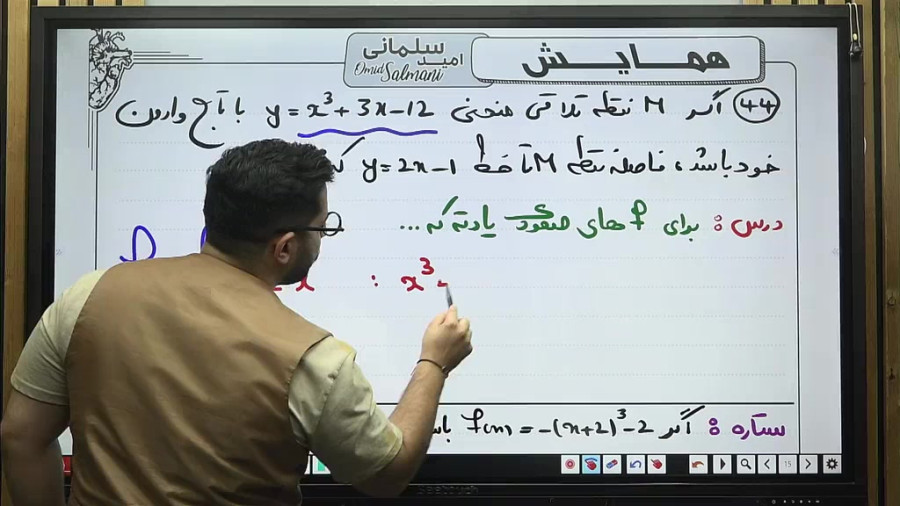 همایش
امید سلمانی
Omid Salmani
۴۴ اگر M نقطه تلاقی منحنی y = x³ + 3x - 12 با تابع وارون
خود باشد، فاصله نقطه M تا خط y = 2x - 1
درس: برای f های صعودی یادته که ...
x : x³
ستاره: اگر f(x) = -(x+2)³ - 2
15